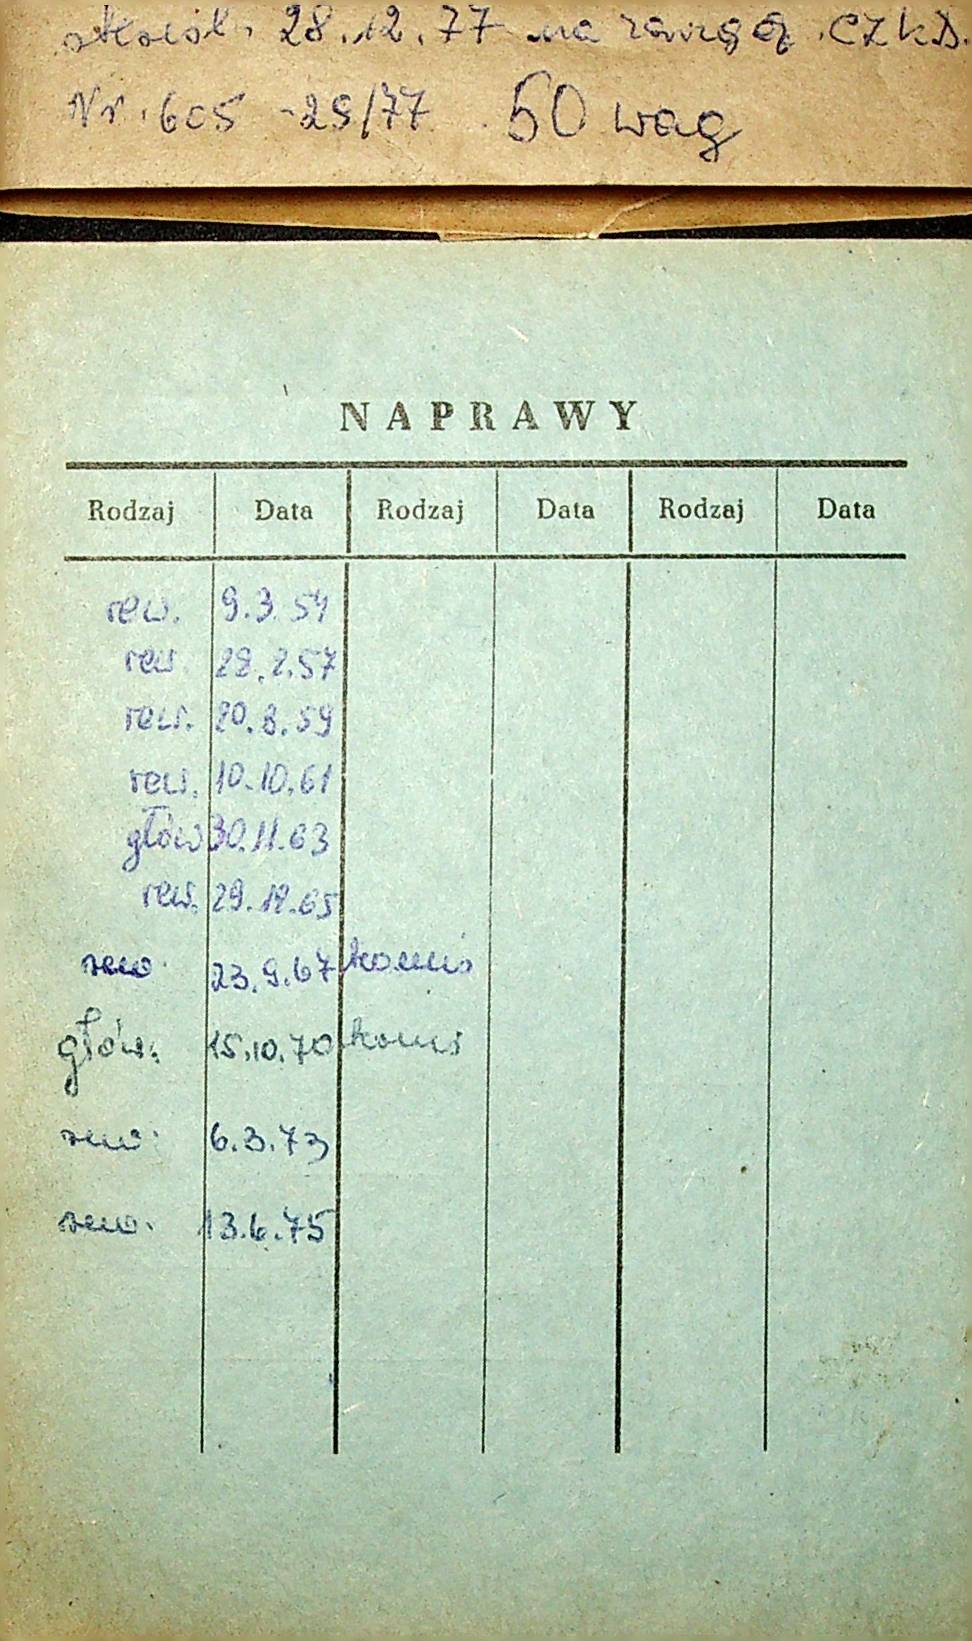 28.12.77 na CZKD.
Nr. 605 -25/77 50 wag
NAPRAWY
Rodzaj Data Rodzaj Data Rodzaj Data
rew. 9.3.54
rew. 28.2.57
rew. 20.8.59
rew. 10.10.61
głów 30.11.63
rew. 29.12.65
rew. 23.9.67 komis
głów. 15.10.70 komis
rew. 6.3.73
rew. 13.6.75